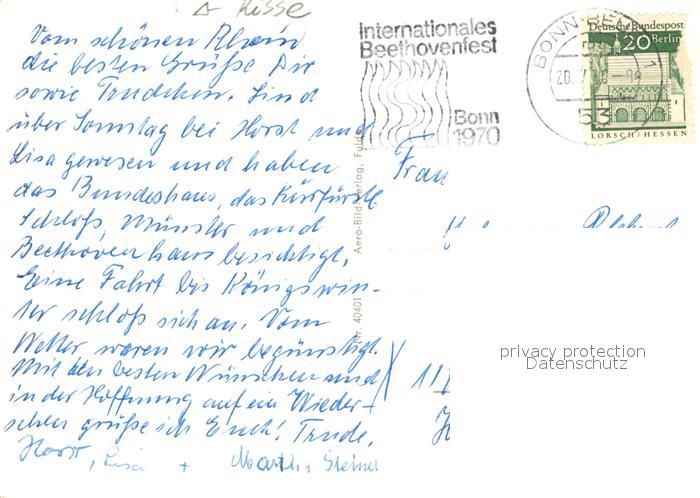 Δ Küsse
Vom schönen Rhein
die besten Grüße Dir
sowie Trudchen. Sind
über Sonntag bei Horst und
Lisa gewesen und haben
das Bundeshaus, das Kurfürstl.
Schloß, Münster und
Beethovenhaus besichtigt,
Eine Fahrt bis Königswin-
ter schloß sich an. Vom
Wetter waren wir begünstigt.
Mit den besten Wünschen und
in der Hoffnung auf ein Wieder-
sehen grüße ich Euch! Trude,
Horst, Lisa + Steiner
Internationales
Beethovenfest
Bonn
1970
BONN-BEUEL 1
20.7.70
53
Deutsche Bundespost
20 Berlin
LORSCH/HESSEN
Nr. 40401 Aero-Bild-Verlag, Fulda
Frau
11
privacy protection
Datenschutz